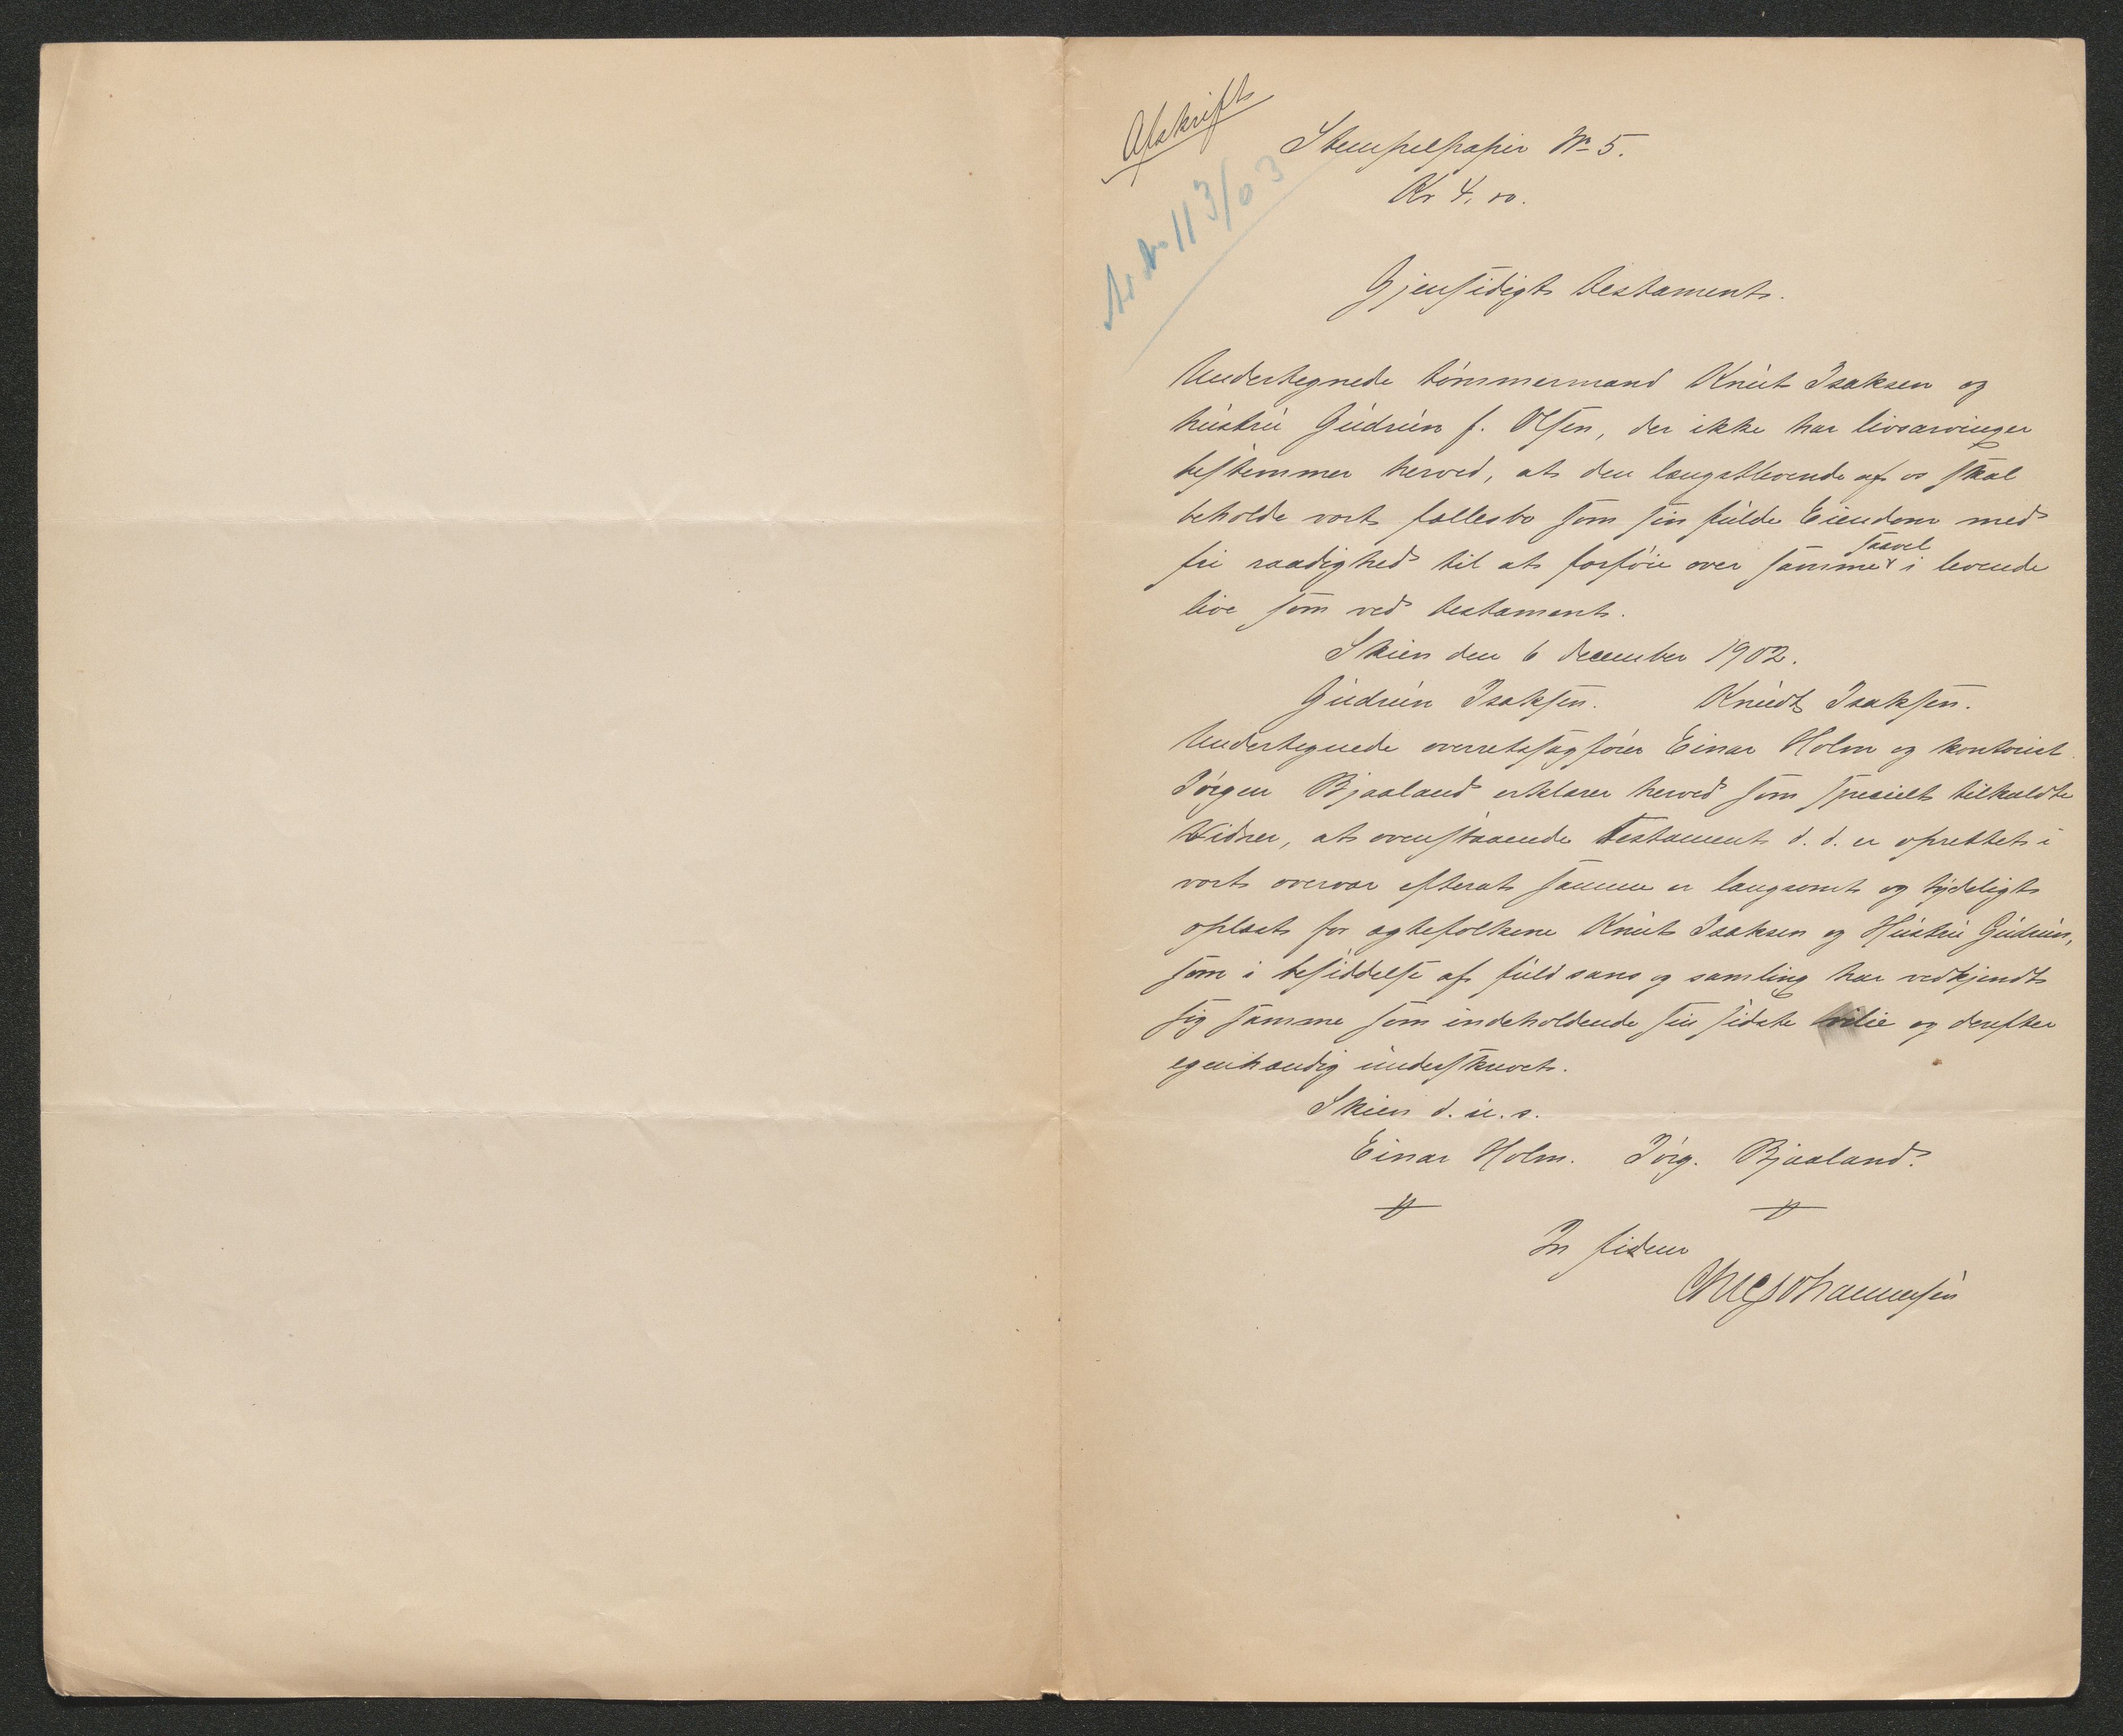 Afskrift
Stempelpapir No 5.
Kr 4.00.
No 113/03
Gjensidigt testament.
Undertegnede tømmermand Knut Isaksen og
hustru Gudrun f. Olsen, der ikke har livsarvinger
bestemmer herved, at den længstlevende af os skal
beholde vort fællesbo som sin fulde Eiendom med
fri raadighed til at forføie over samme saavel i levende
live som ved testament.
Skien den 6 december 1902.
Gudrun Isaksen. Knudt Isaksen.
Undertegnede overretssagfører Einar Holm og kontorist
Jørgen Bjaaland erklærer herved som specielt tilkaldte
Vidner, at ovenstaaende Testament d. d. er oprettet i
vort overvær efterat samme er langsomt og tydeligt
oplæst for ægtefolkene Knut Isaksen og Hustru Gudrun,
som i besiddelse af fuld sans og samling har vedkjendt
sig samme som indeholdende sin sidste vilie og derefter
egenhændig underskrevet.
Skien d. u. s.
Einar Holm. Jørg. Bjaaland.
In fidem